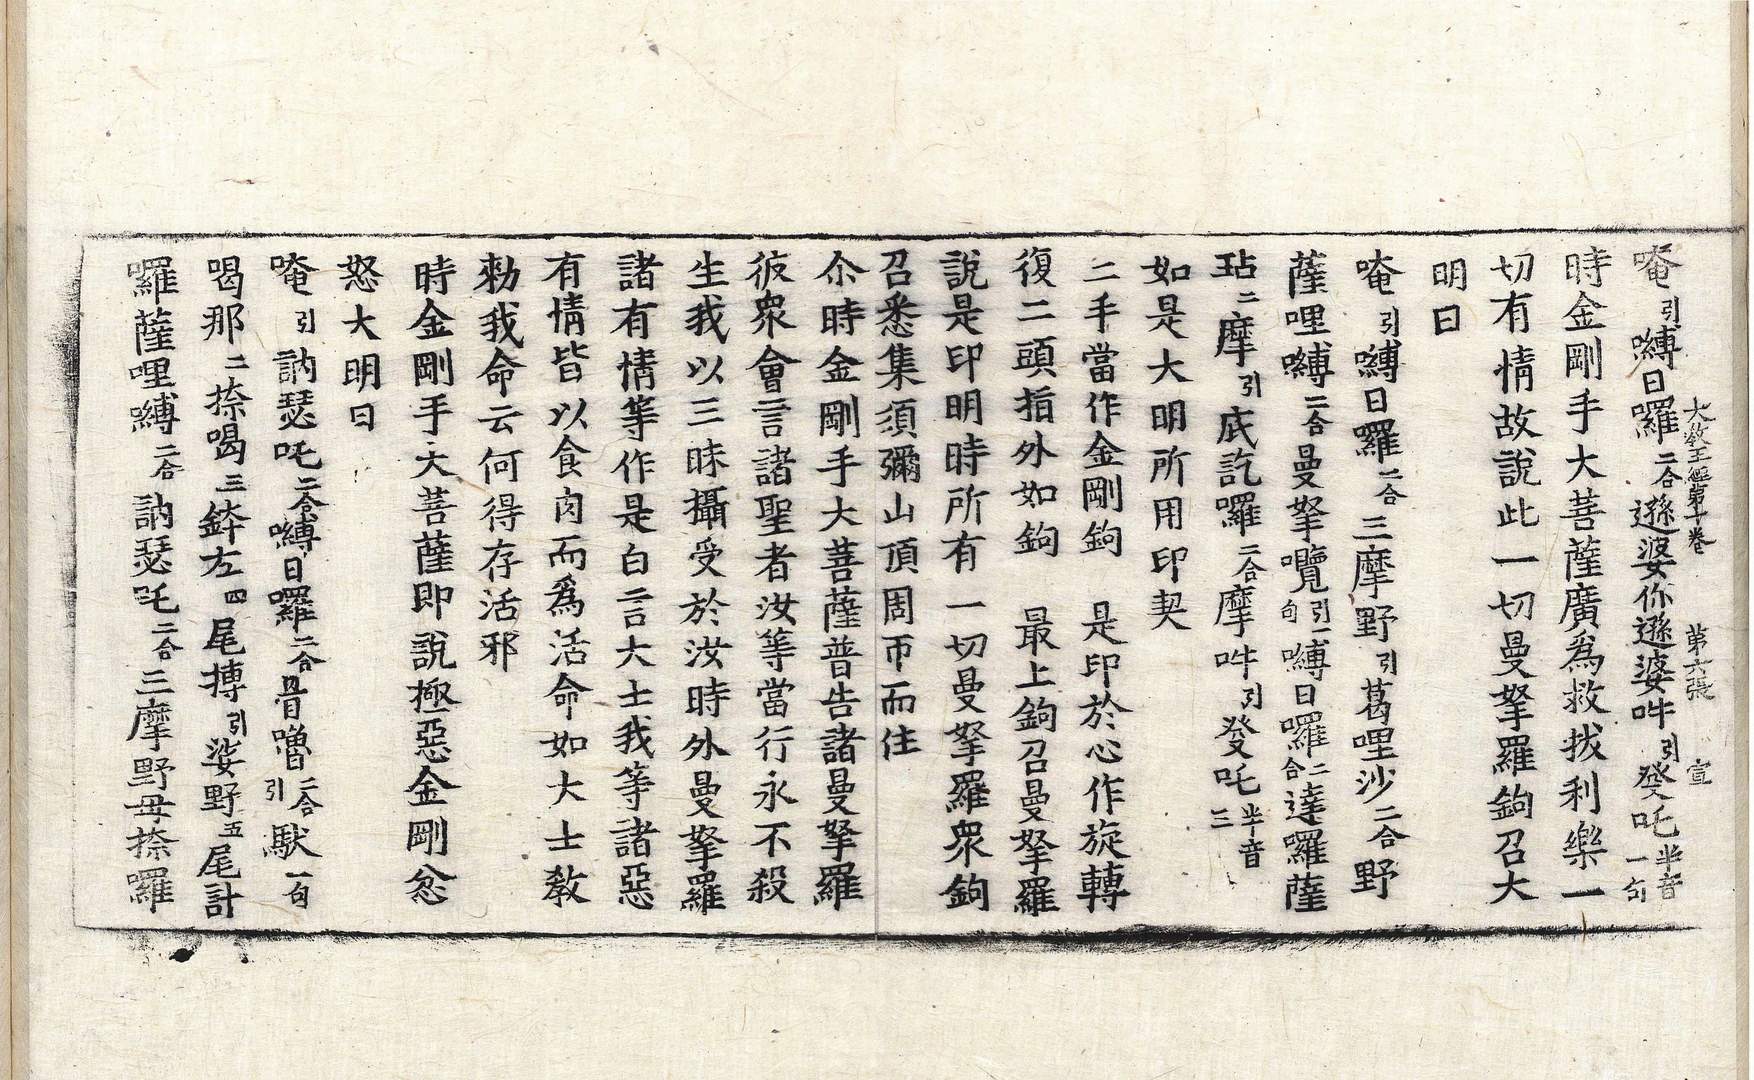 大教王經第十卷　第六張　宣
唵引嚩日囉二合遜婆你遜婆吽引癹吒半音一句
時金剛手大菩薩廣爲救拔利樂一
切有情故說此一切曼拏羅鉤召大
明曰
唵引嚩日囉二合三摩野引葛哩沙二合野
薩哩嚩二合曼拏囕引一句嚩日囉二合達囉薩
玷二摩引底訖囉二合摩吽引癹吒半音三
如是大明所用印契
二手當作金剛鉤　是印於心作旋轉
復二頭指外如鉤　最上鉤召曼拏羅
說是印明時所有一切曼拏羅眾鉤
召悉集須彌山頂周帀而住
尒時金剛手大菩薩普告諸曼拏羅
彼眾會言諸聖者汝等當行永不殺
生我以三昧攝受於汝時外曼拏羅
諸有情等作是白言大士我等諸惡
有情皆以食肉而爲活命如大士教
勑我命云何得存活邪
時金剛手大菩薩即說極惡金剛忿
怒大明曰
唵引訥瑟吒二合嚩日囉二合骨嚕二合引馱一句
喝那二捺喝三鉢左四尾摶引娑野五尾計
囉薩哩嚩二合訥瑟吒二合三摩野毋捺囉